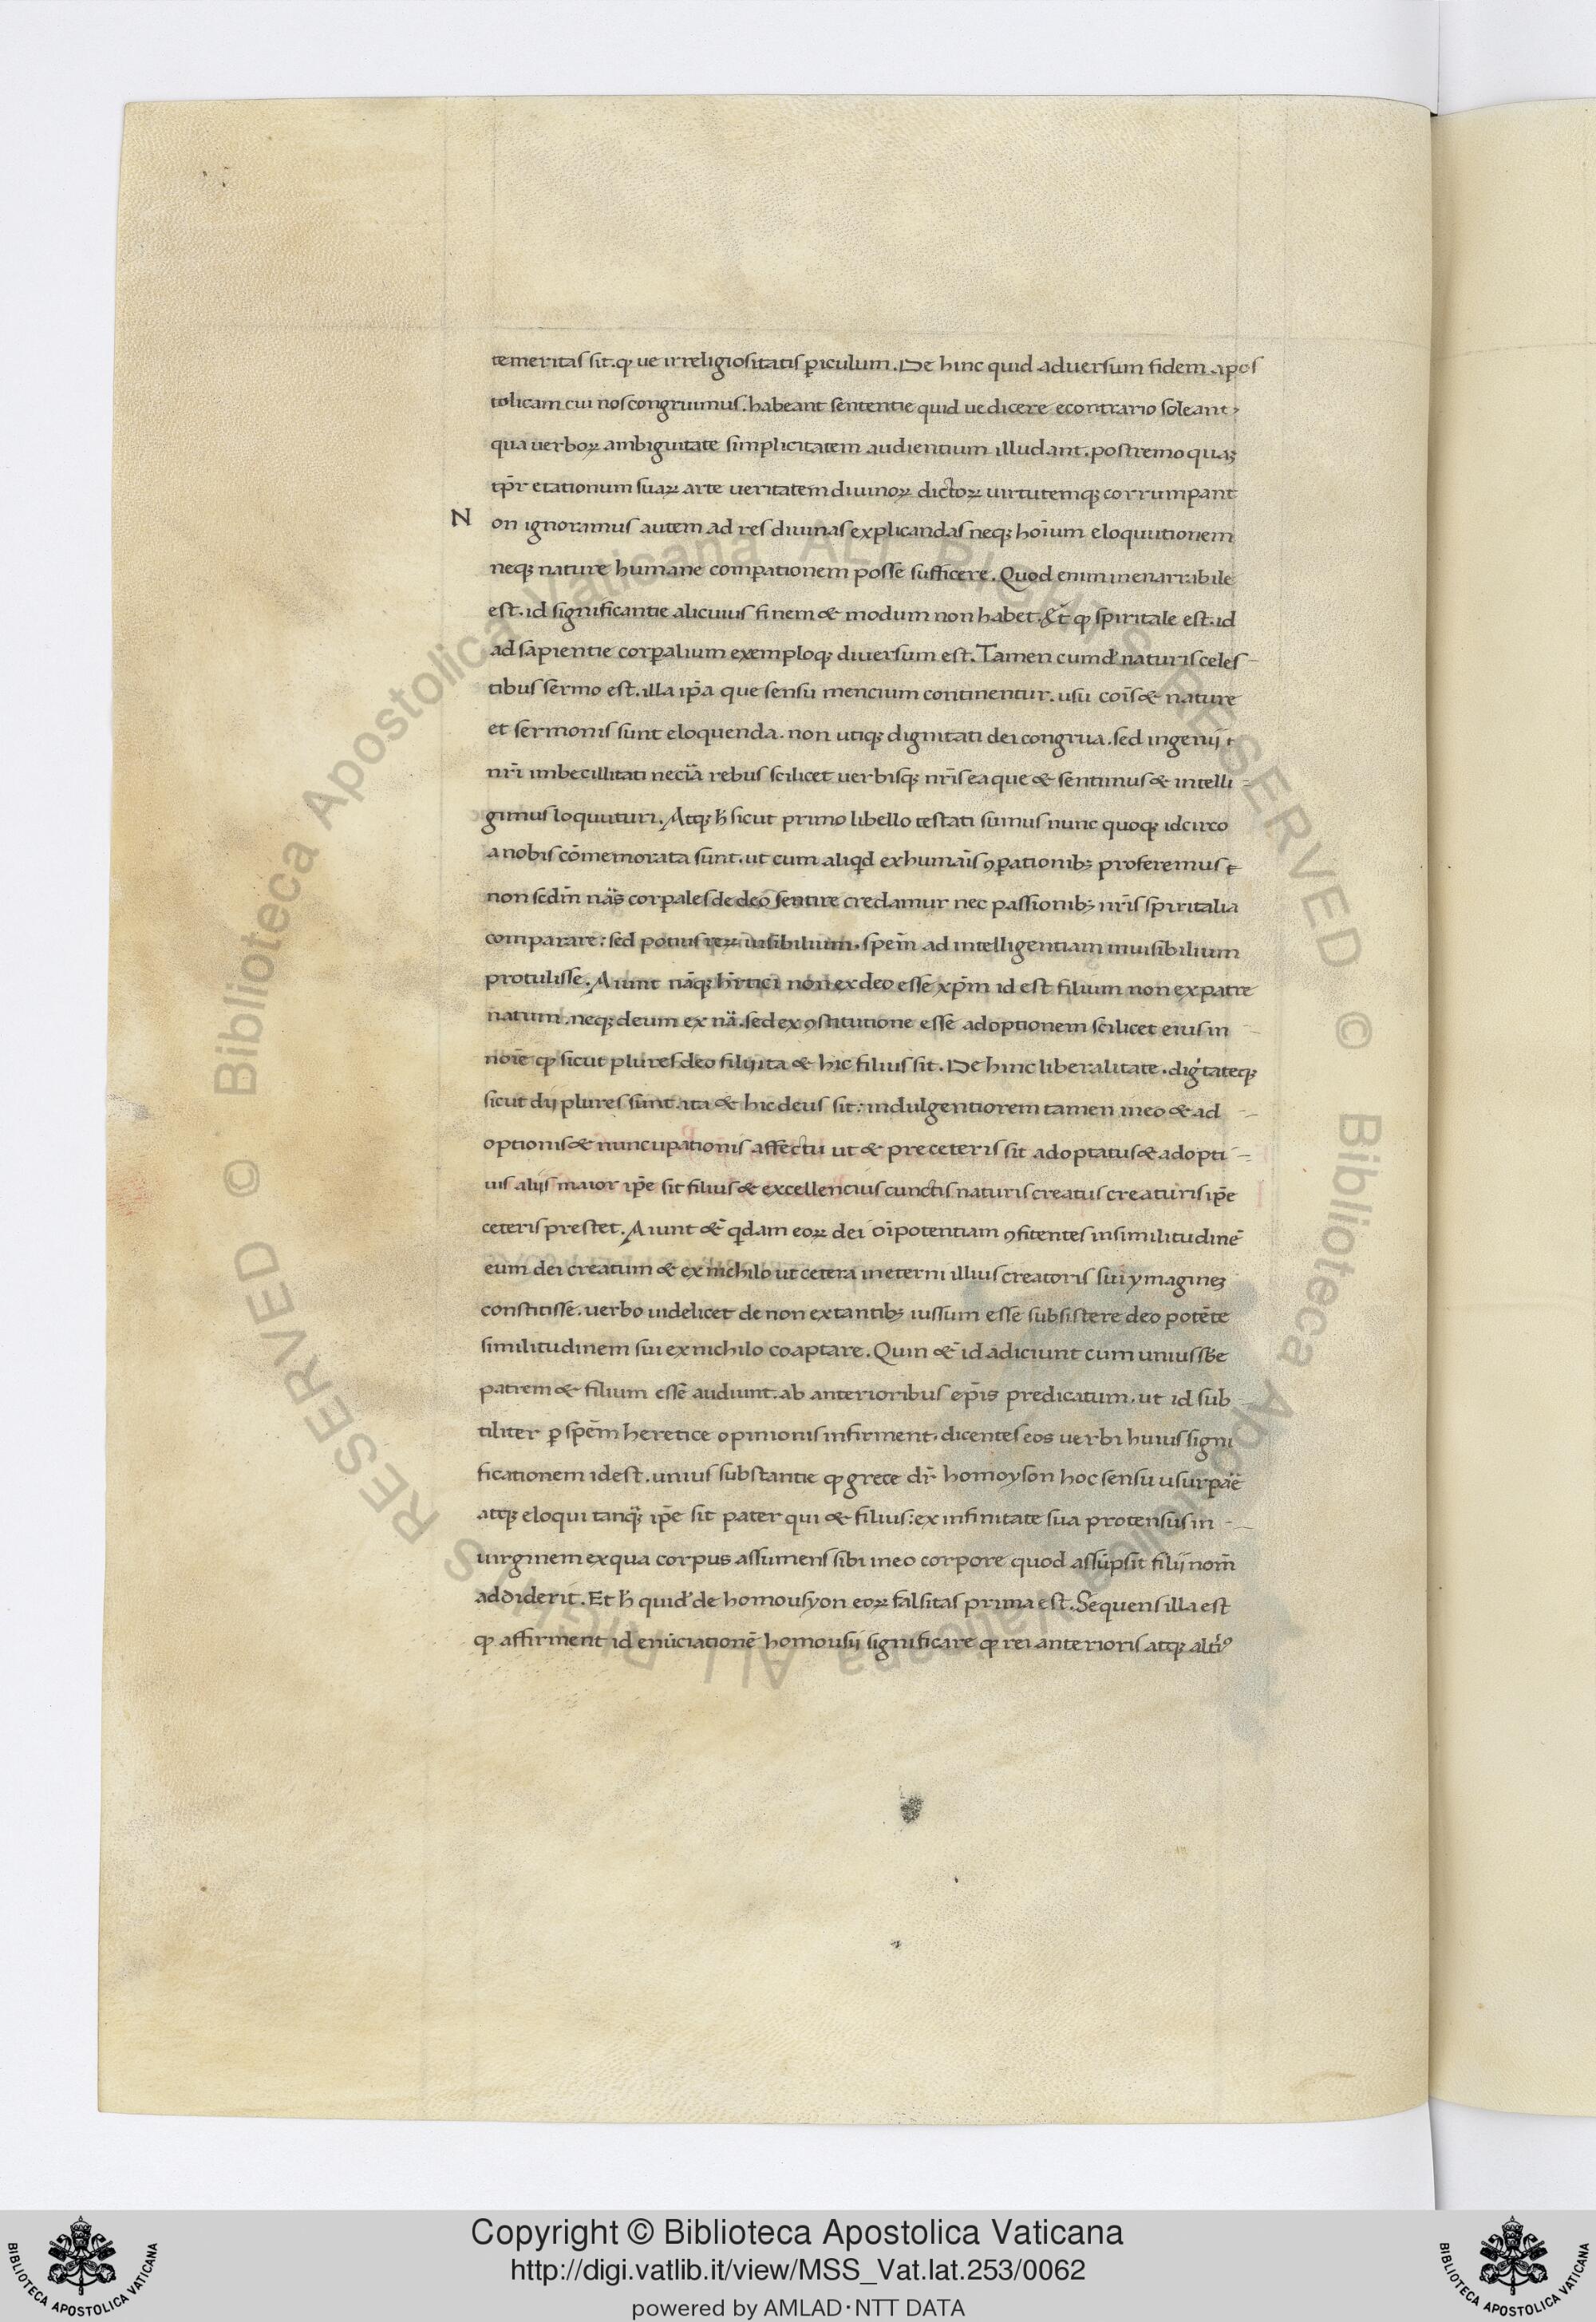 temeritas sit. ꝙ ue irreligiositatis ꝑiculum. De hinc quid aduersum fidem apos
tolicam cui nos congruimus. habeant sententie quid ue dicere econtrario soleant,
qua uerboꝝ ambiguitate simplicitatem audientium illudant. postremo quaꝫ
tp̄r etationum suaꝝ arte ueritatem diuinoꝝ dictoꝝ uirtutemqꝫ corrumpant
N on ignoramus autem ad res diuinas explicandas neqꝫ hoı̄um eloquutionem
neqꝫ nature humane comꝑationem posse sufficere. Quod enim inenarrabile
est. id significantie alicuius finem & modum non habet. &t̄ ꝙ spiritale est. id
ad sapientie corꝑalium exemploqꝫ diuersum est. Tamen cum d' naturis celes-
tibus sermo est. illa ip̄a que sensu mencium continentur. usu coı̄s & nature
et sermonis sunt eloquenda. non utiqꝫ dignitati dei congrua. sed ingenij
nr̄i imbecillitati necı̄a rebus scilicet uerbisqꝫ nr̄is ea que & sentimus & intelli-
gimus loquuturi. Atqꝫ h̄ sicut primo libello testati sumus nunc quoqꝫ idcirco
a nobis cōmemorata sunt. ut cum aliqd̄ ex humaı̄s ꝯꝑationibꝫ proferemus
non sedm̄ nāȿ corꝑales de deo sentire credamur nec passionibꝫ nr̄is spiritalia
comparare: sed potius reꝝ uisibilium. spem̄ ad intelligentiam inuisibilium
protulisse. Aiunt nāqꝫ hr̄tici non ex deo esse xp̄m id est filium non ex patre
natum. neqꝫ deum ex nā. sed ex ꝯstitutione esse adoptionem scilicet eius in
noı̄e ꝙ sicut plures deo filij ita & hic filius sit. De hinc liberalitate. dig'tateqꝫ
sicut dij plures sunt. ita & hic deus sit: indulgentiorem tamen in eo & ad-
optionis & nuncupationis affectu ut & pre ceteris sit adoptatus & adopti-
uis alijs maior ip̄e sit filius & excellencius cunctis naturis creatus creaturis ip̄e
ceteris prestet. Aiunt &̄ qd̄am eoꝝ dei oı̄potentiam ꝯfitentes in similitudinē
eum dei creatum & ex nichilo ut cetera in eterni illius creatoris sui ymagineꝫ
constitisse. uerbo uidelicet de non extantibꝫ iussum esse subsistere deo potēte
similitudinem sui ex nichilo coaptare. Quin &̄ id adiciunt cum unius sb̄e
patrem & filium esse audiunt. ab anterioribus ep̄is predicatum. ut id sub-
tiliter ꝑ spēm heretice opinionis infirment. dicentes eos uerbi huius signi
ficationem id est. unius substantie ꝙ grece dr̄ homoyson hoc sensu usurpāe
atqꝫ eloqui tanq̄ꝫ ip̄e sit pater qui & filius: ex infinitate sua protensus in-
uirginem ex qua corpus assumens sibi in eo corpore quod assūpsit̄ filij nom̄
addiderit. Et h̄ quid' de homousyon eoꝝ falsitas prima est. Sequens illa est
ꝙ affirment id enūciationē homousij significare ꝙ rei anterioris atqꝫ altı̄ꝰ
Copyright © Biblioteca Apostolica Vaticana
http://digi.vatlib.it/view/MSS_Vat.lat.253/0062
powered by AMLAD·NTT DATA
BIBLIOTECA APOSTOLICA VATICANA
BIBLIOTECA APOSTOLICA VATICANA
© Biblioteca Apostolica Vaticana ALL RIGHTS RESERVED © Biblioteca Apostolica Vaticana ALL RIGHTS RESERVED